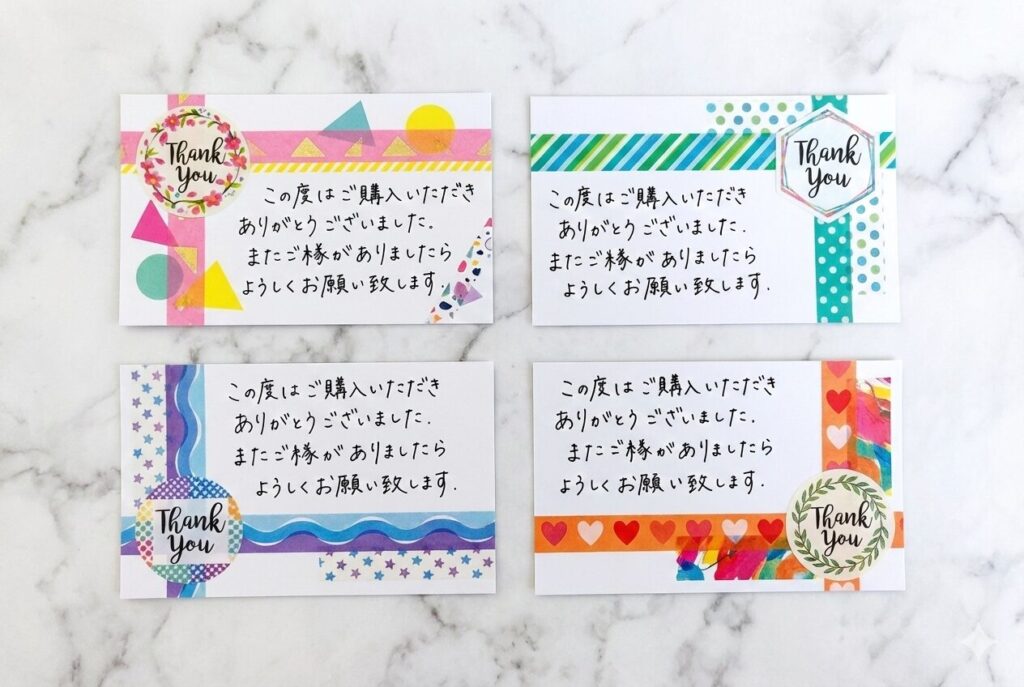 Thank
You
この度はご購入いただき
ありがとうございました.
またご縁がありましたら
ようしくお願い致します.
Thank
You
この度はご購入いただき
ありがとうございました.
またご縁がありましたら
ようしくお願い致します.
この度はご購入いただき
ありがとうございました.
またご縁がありましたら
ようしくお願い致します.
Thank
You
この度はご購入いただき
ありがとうございました.
またご縁がありましたら
ようしくお願い致します.
Thank
You